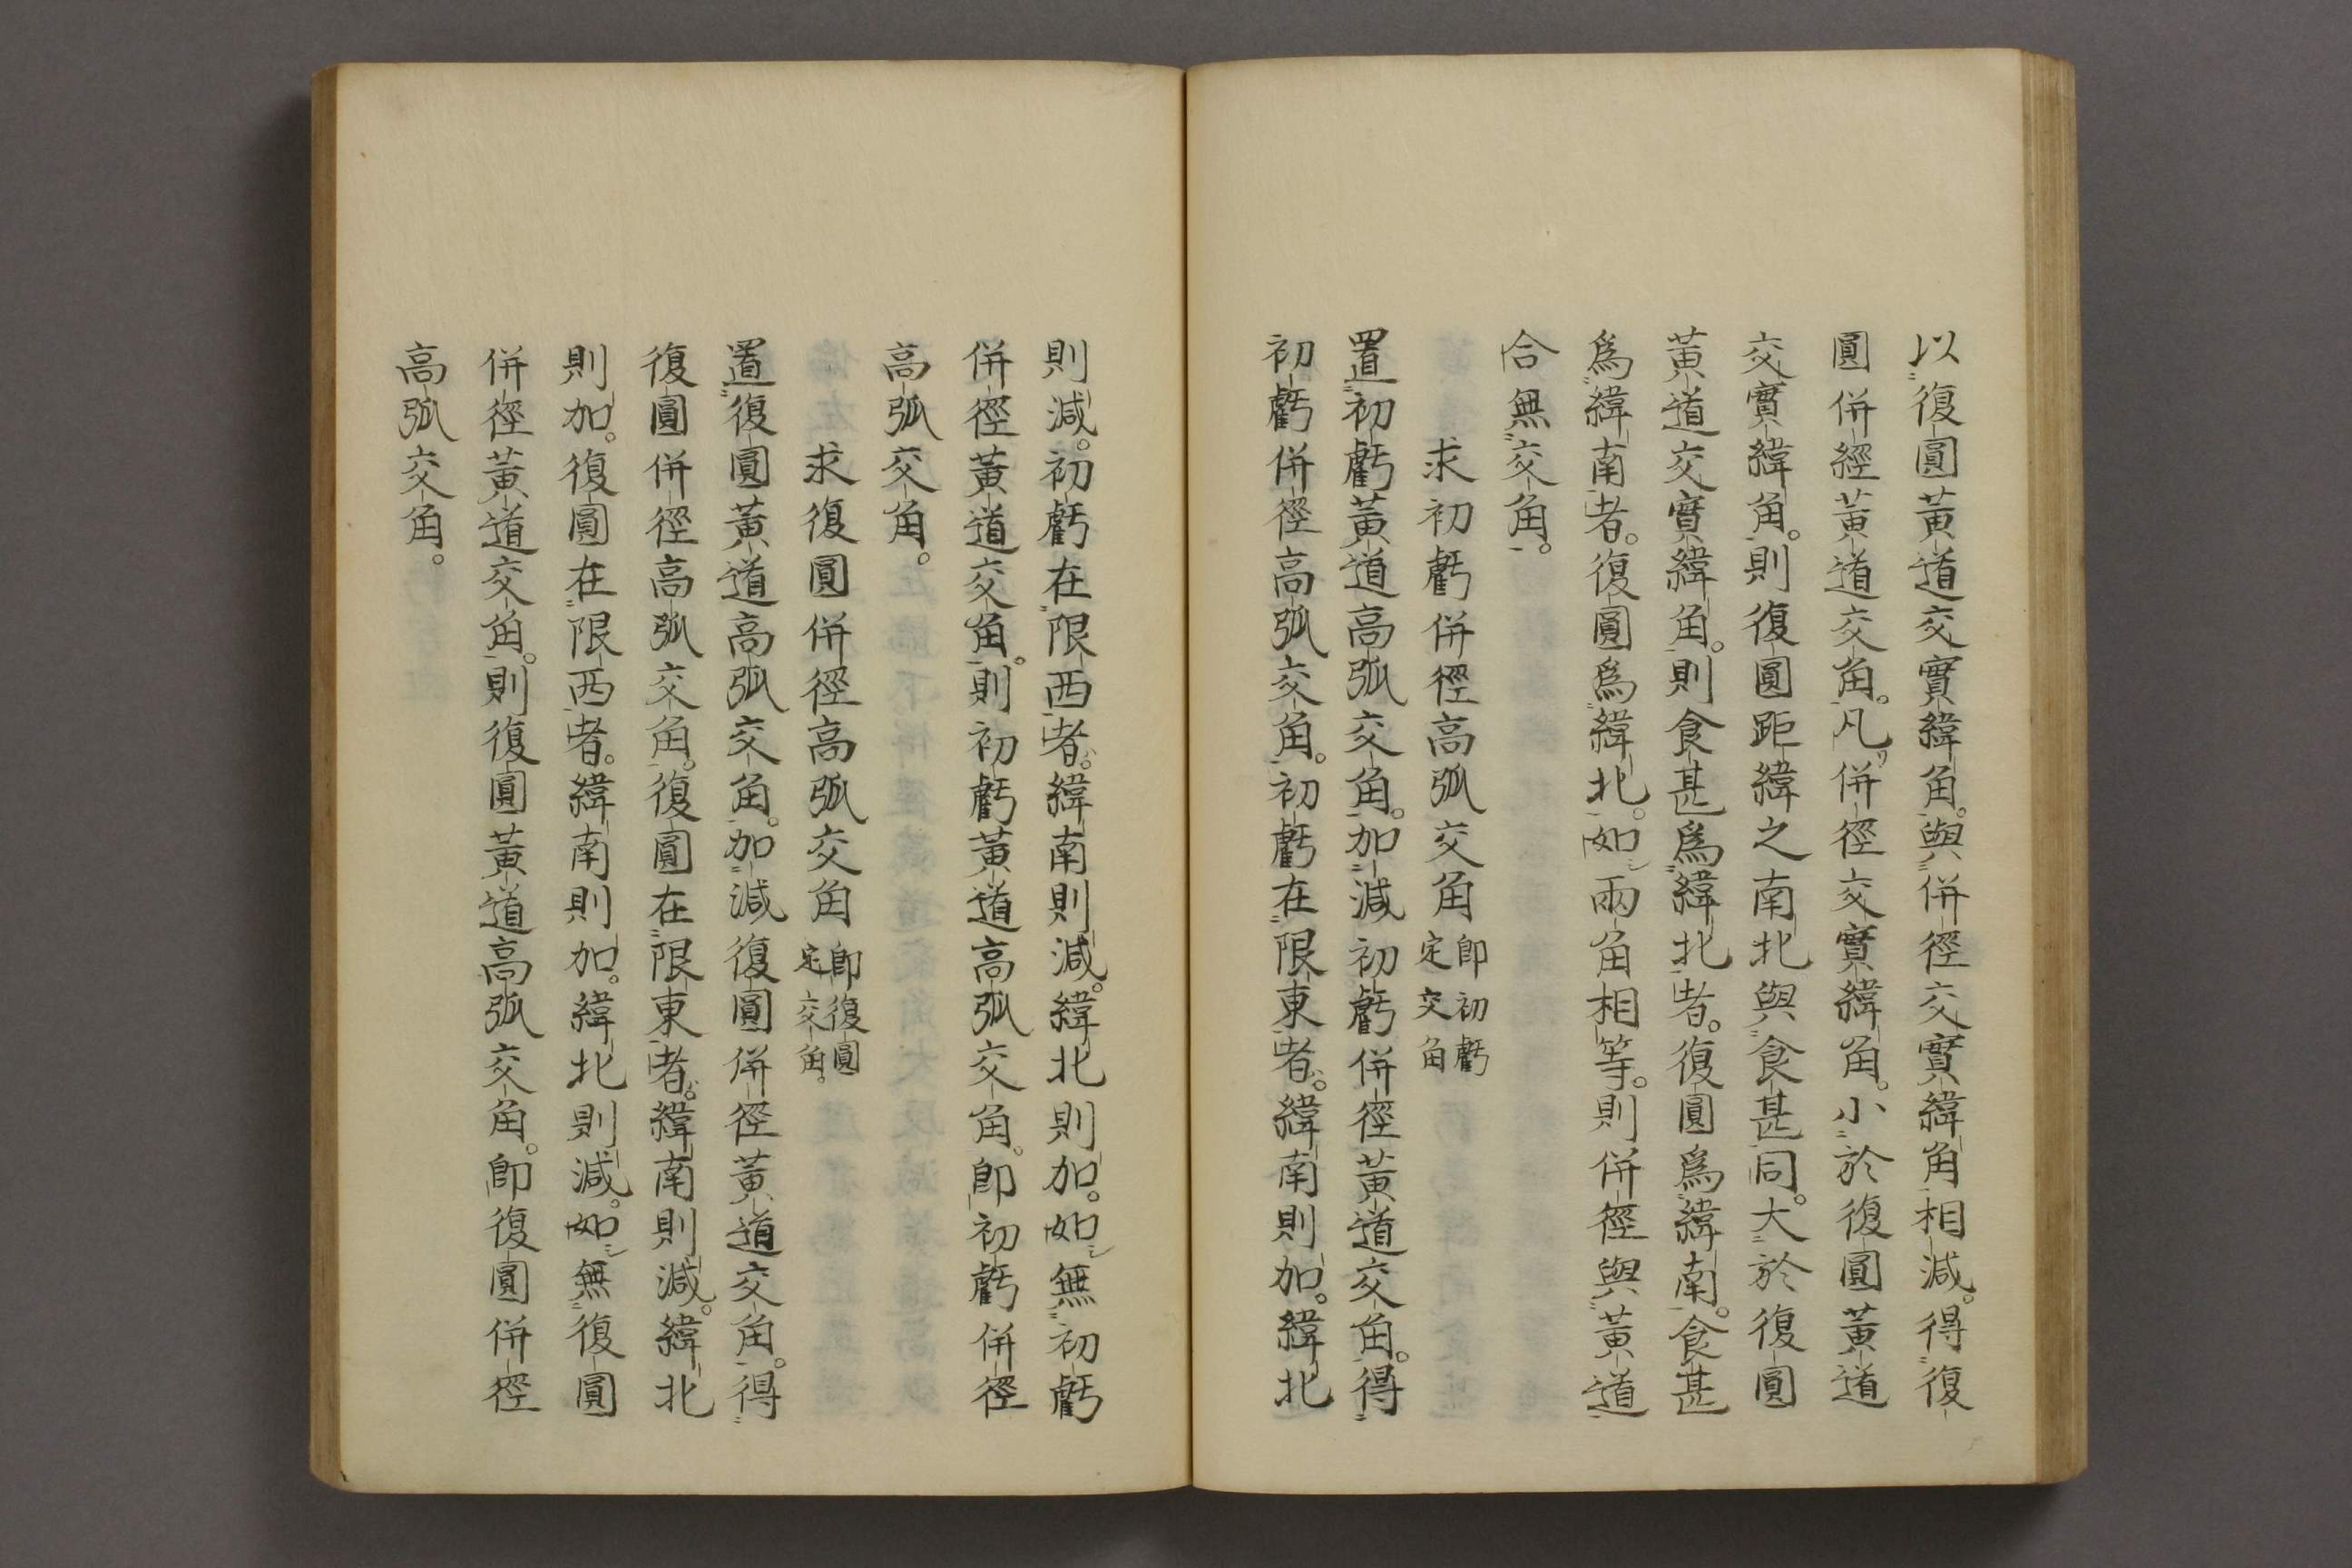 以復圓黃道交實緯角。與併徑交實緯角相減。得復
圓併經黃道交角。凡併徑交實緯角。小於復圓黃道
交實緯角。則復圓距緯之南北與食甚同。大於復圓
黃道交實緯角。則食甚爲緯北者。復圓爲緯南。食甚
爲緯南者。復圓爲緯北。如兩角相等。則併徑與黃道
合無交角。
求初虧併徑高弧交角 卽初虧
定交角
置初虧黃道高弧交角。加減初虧併徑黃道交角。得
初虧併徑高弧交角。初虧在限東者。緯南則加。緯北
則減。初虧在限西者。緯南則減。緯北則加。如無初虧
併徑黃道交角。則初虧黃道高弧交角。卽初虧併徑
高弧交角。
求復圓併徑高弧交角 卽復圓
定交角。
置復圓黃道高弧交角。加減復圓併徑黃道交角。得
復圓併徑高弧交角。復圓在限東者。緯南則減。緯北
則加。復圓在限西者。緯南則加。緯北則減。如無復圓
併徑黃道交角。則復圓黃道高弧交角。卽復圓併徑
高弧交角。